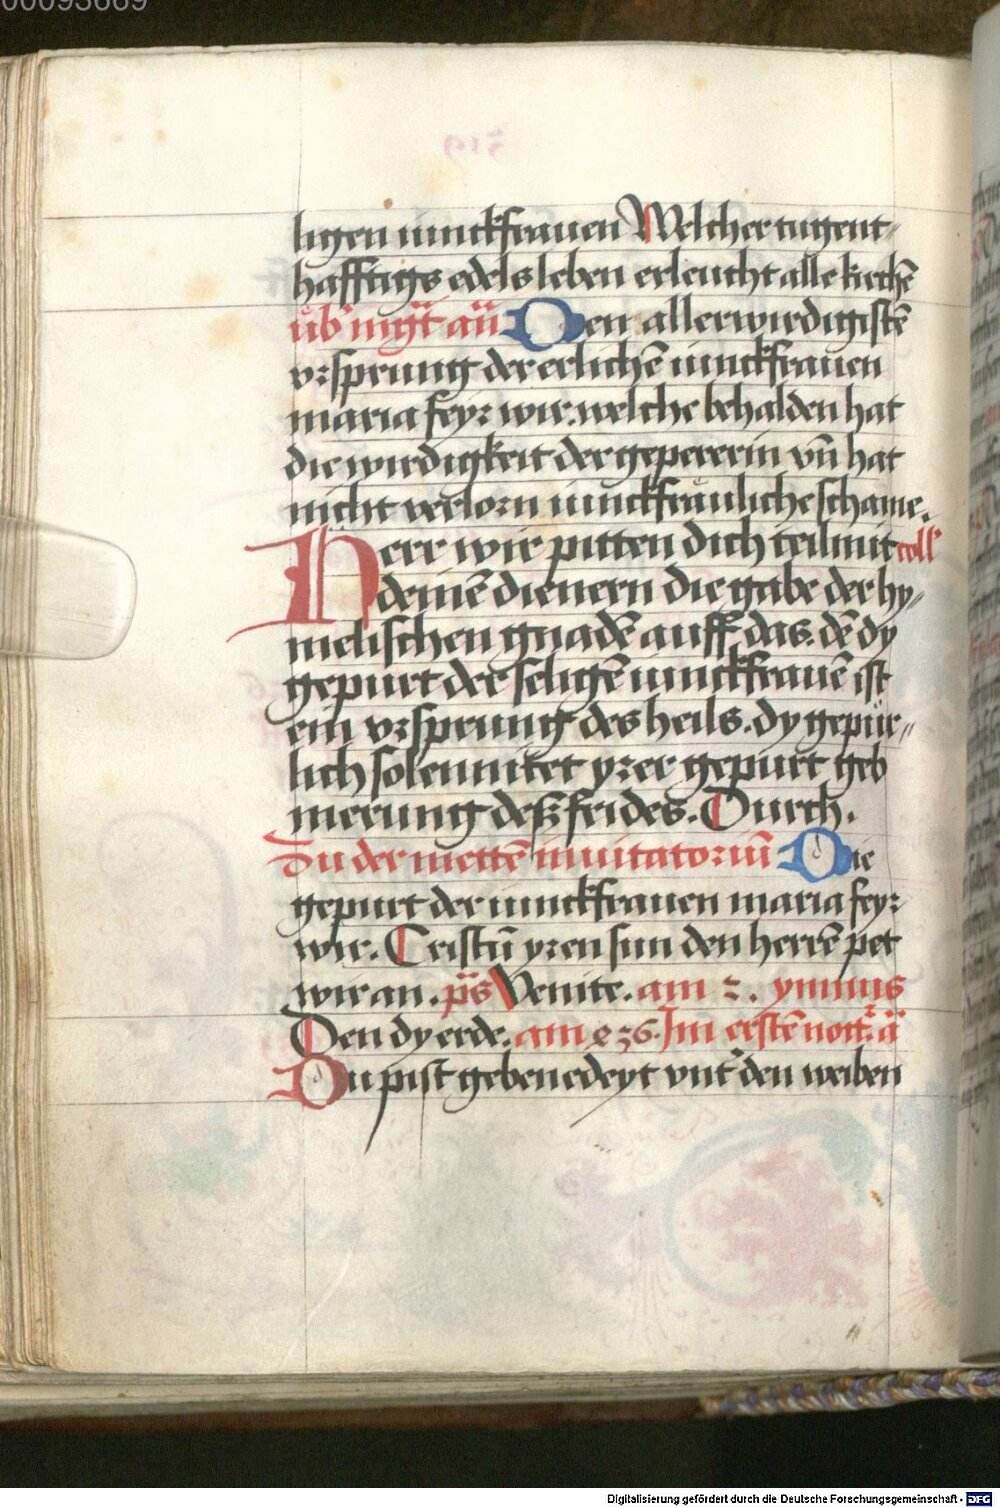 00093669
ligen iunckfrauen Welcher tugent-
hafftigs edels leben erleucht alle kirchē
üb' mgt̄ an̄ Den allerwirdigistē
vrsprung der erlichē iunckfrauen
maria feyr wir. welche behalden hat
die wirdigkeit der gepererin vn̄ hat
nicht verlorn iunckfräuliche schame.
Herr wir pitten dich teil mit coll'
deinē dienern die gabe der hy-
melischen gnadē auff das. dē dy
gepurt der seligē iunckfrauē ist
ein vrsprung des heils. dy gepür-
lich solennitet yrer gepurt geb
merung deß frides. Durch.
Zu der mettē inuitatoriū Die
gepurt der iunckfrauen maria feyr
wir. Cristū yren sun den herrē pet
wir an. ps̄ Venite. am 2. ymnus
Den dy erde. am 236. Im erstē noct̄. ā
Du pist gebenedeyt vnt' den weiben
Digitalisierung gefördert durch die Deutsche Forschungsgemeinschaft - DFG